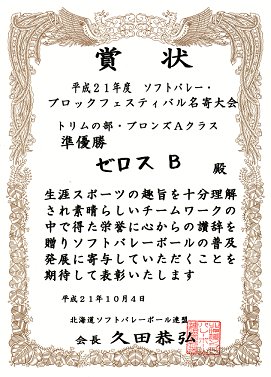 賞状
平成21年度 ソフトバレー・
ブロックフェスティバル名寄大会
トリムの部・ブロンズAクラス
準優勝
ゼロス B 殿
生涯スポーツの趣旨を十分理解
され素晴らしいチームワークの
中で得た栄誉に心からの讃辞を
贈りソフトバレーボールの普及
発展に寄与していただくことを
期待して表彰いたします
平成21年10月4日
北海道ソフトバレーボール連盟
会長 久田恭弘